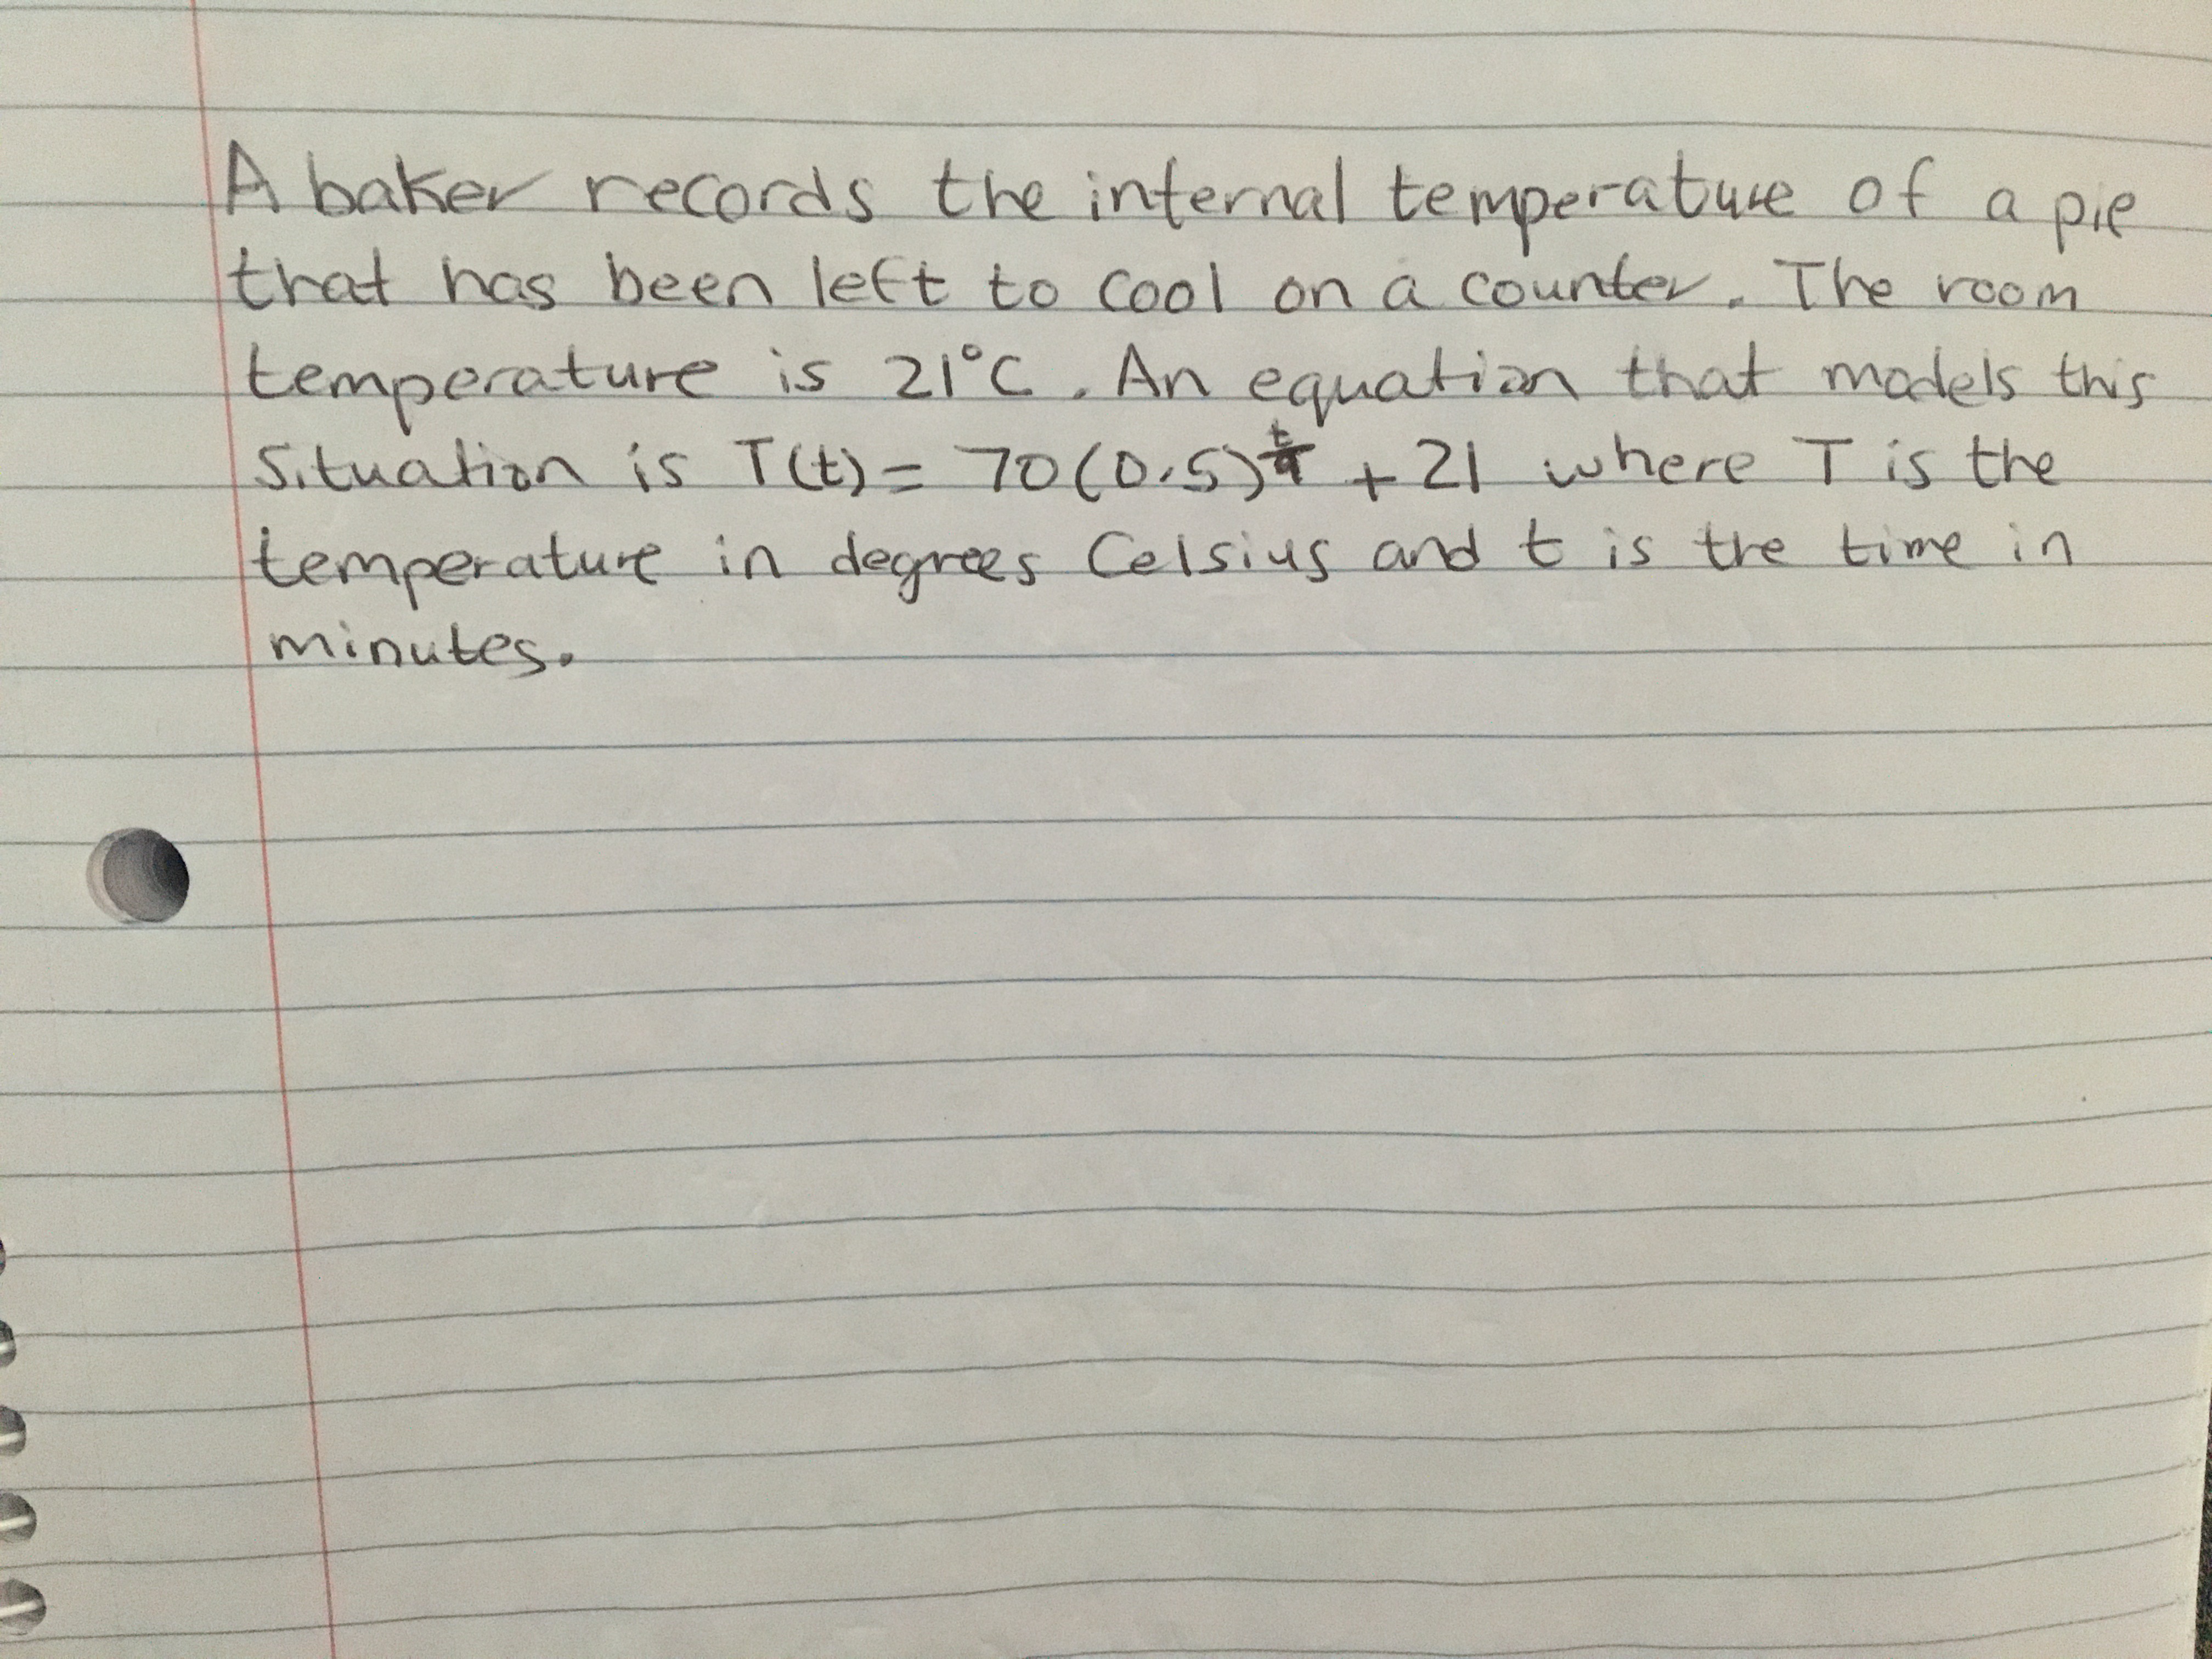 A baker records the internal temperature of a pie
that has been left to cool on a counter. The room
temperature is 21°C. An equation that models this
situation is T(t) = 70(0.5)^(t/9) + 21 where T is the
temperature in degrees Celsius and t is the time in
minutes.